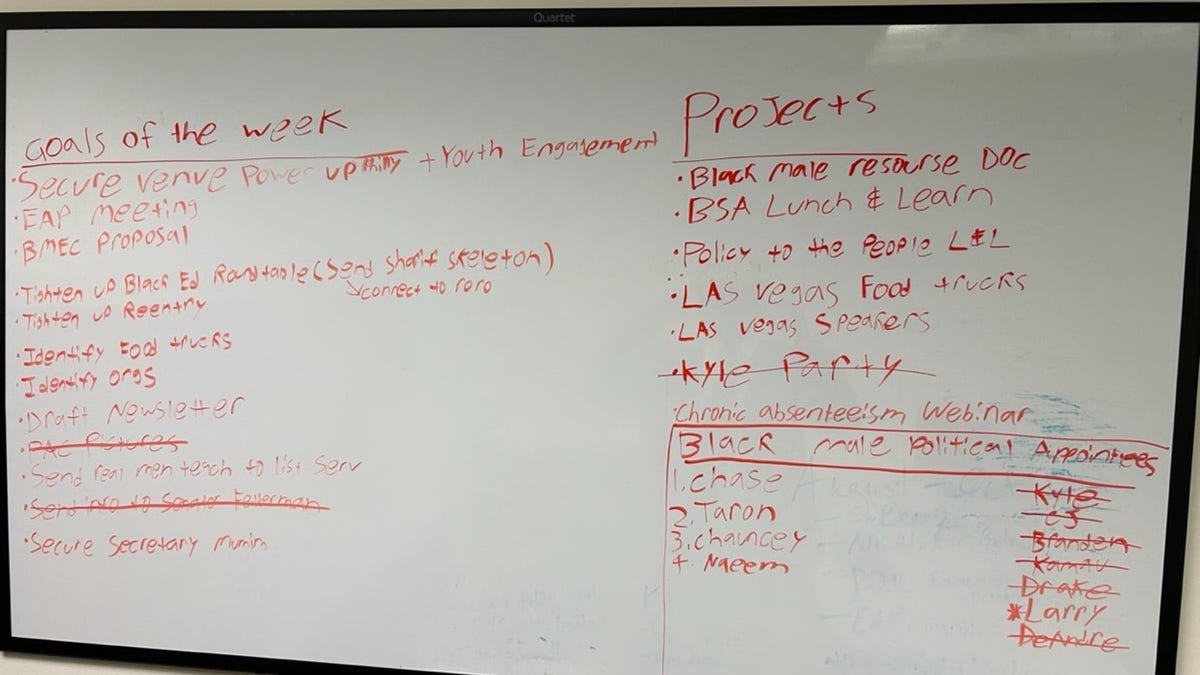 Quartet
Goals of the week
•Secure venue Power up Philly + Youth Engagement
•EAP meeting
•BMEC Proposal
•Tighten up Black Ed Roundtable (Send sharif skeleton)
connect to roro
•Tighten up Reentry
•Identify Food trucks
•Identify orgs
•Draft Newsletter
•PAC Pictures
•Send real men teach to list serv
•Send info to Senator Fetterman
•Secure Secretary Mumin
Projects
•Black male resourse DOC
•BSA Lunch & Learn
•Policy to the People L&L
•LAS vegas Food trucks
•LAS vegas Speakers
•Kyle Party
•Chronic absenteeism Webinar
Black male Political Appointees
1. Chase
2. Taron
3. Chauncey
4. Naeem
Kyle
CJ
Branden
Drake
*Larry
DeAndre